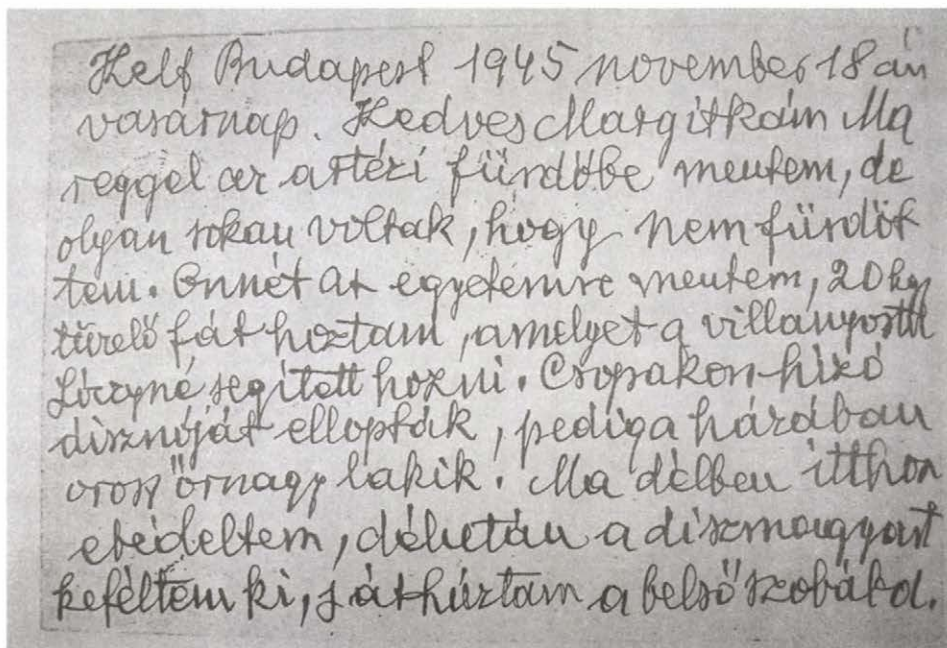 Kelt Budapest 1945 november 18 án
vasárnap. Kedves Margitkám Ma
reggel az artézi fürdőbe mentem, de
olyan sokan voltak, hogy nem fürdöt
tem. Onnét az egyetemre mentem, 20 kg
tüzelő fát hoztam, amelyet a villanyostól
Lóczyné segített hozni. Csopakon hízó
disznóját ellopták, pedig a házában
orosz őrnagy lakik. Ma délben itthon
ebédeltem, délután a díszmagyart
keféltem ki, s áthúztam a belső szobába.